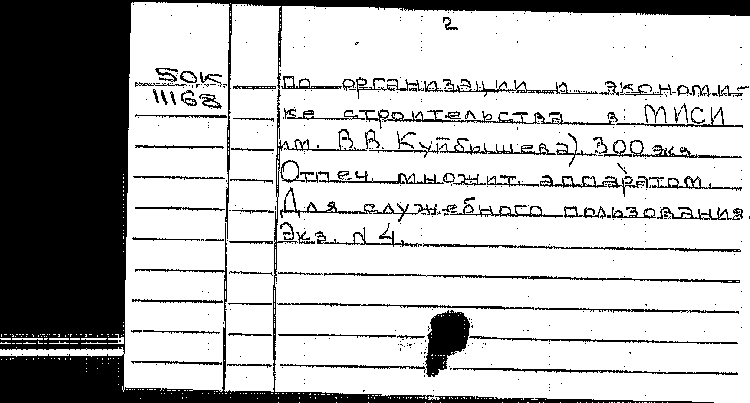 2
50К
11168
по организации и экономи-
ке строительства в МИСИ
им. В.В. Куйбышева). 300 экз.
Отпеч. множит. аппаратом.
Для служебного пользования.
Экз. N 4.